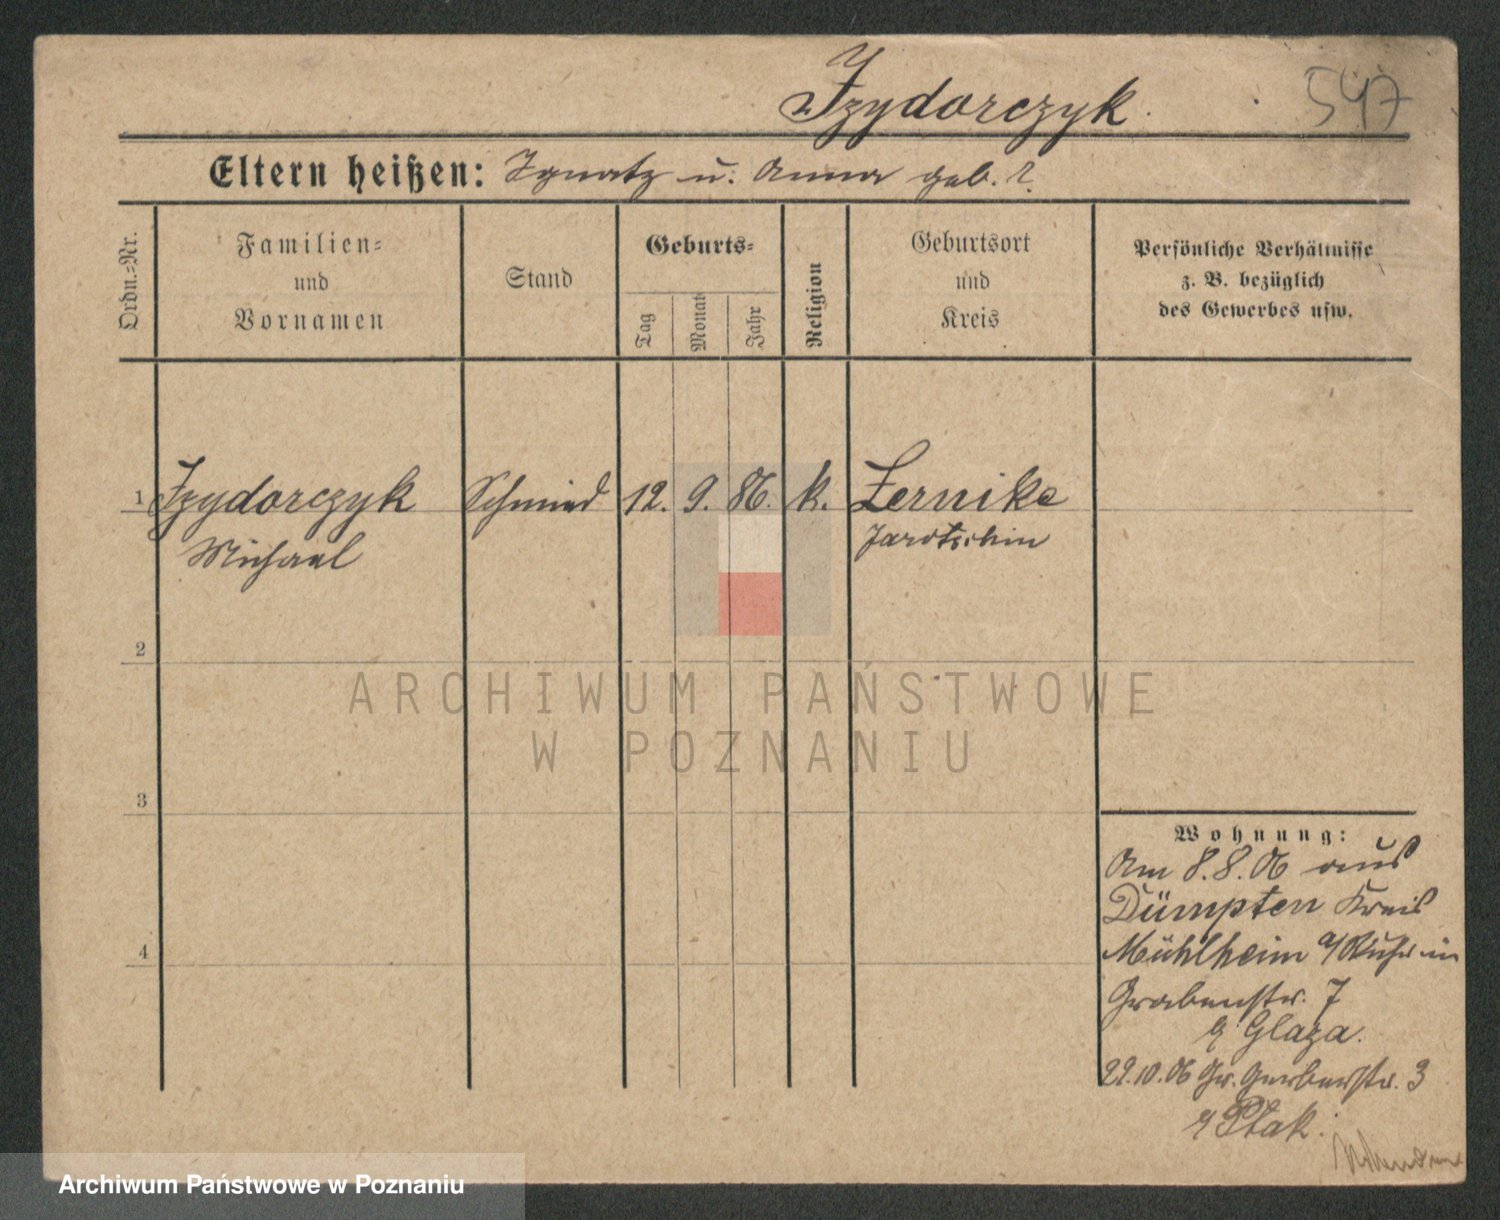 Izydorczyk.
547
Eltern heißen: Ignatz u. Anna geb. ?
Ordn.=Nr.
Familien=
und
Vornamen
Stand
Geburts=
Tag
Monat
Jahr
Religion
Geburtsort
und
Kreis
Persönliche Verhältnisse
z. B. bezüglich
des Gewerbes usw.
1 Izydorczyk Schmied 12. 9. 86. k. Zernike
Michael Jarotschin
2
ARCHIWUM PAŃSTWOWE
W POZNANIU
3
Wohnung:
Am 8.8.06 aus
Dümpten Kreis
Mühlheim a/Ruhr in
Grabenstr. 7
b/ Glaza.
4
22.10.06 Gr. Gerberstr. 3
b/ Ptak.
Archiwum Państwowe w Poznaniu